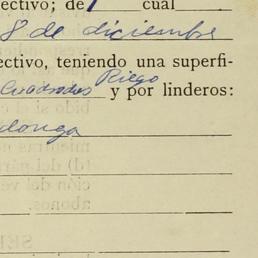 ectivo; de cual
8 de diciembre
ectivo, teniendo una superfi-
Riego
Cuadrados y por linderos:
donga